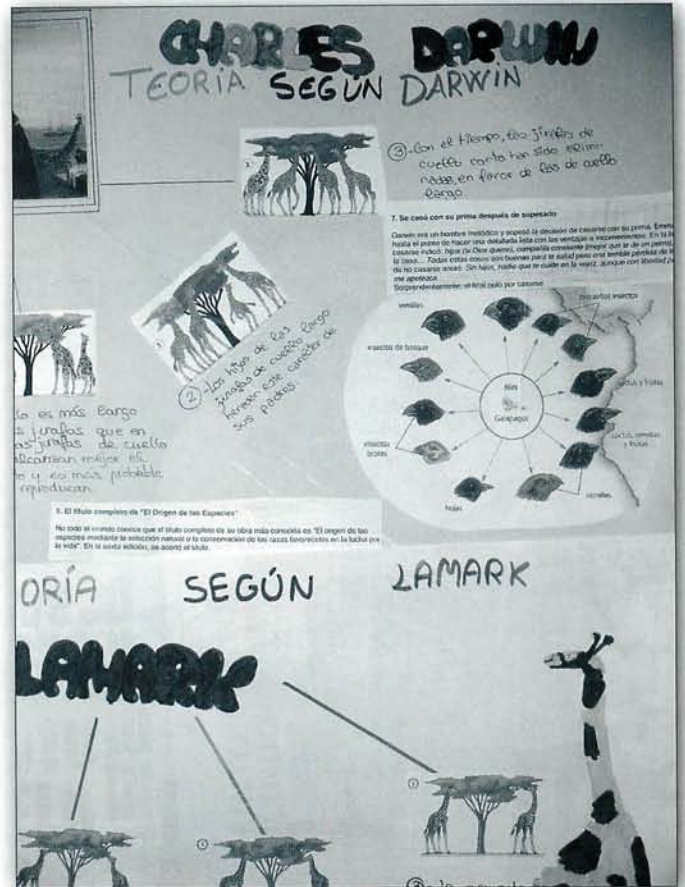 CHARLES DARWIN
TEORÍA SEGÚN DARWIN
③-Con el tiempo, las jirafas de
cuello corto han sido elimi-
nadas, en favor de las de cuello
largo.
7. Se casó con su prima después de sopesarlo
Darwin era un hombre metódico y sopesó la decisión de casarse con su prima.
hasta el punto de hacer una detallada lista con las ventajas e inconvenientes. En la
casarse indicó: hijos (si Dios quiere), compañía constante (mejor que la de un perro),
la casa... Todas estas cosas son buenas para la salud pero una terrible pérdida de
de no casarse anotó: Sin hijos, nadie que te cuide en la vejez, aunque con libertad
me apetezca.
Sorprendentemente, al final optó por casarse
②-Los hijos de las
jirafas de cuello largo
heredan este carácter de
sus padres.
semillas
pequeños insectos
insectos de bosque
cactus y frutas
Islas
Galápagos
cactus, semillas
y frutas
insectos
hojas
semillas
es más largo
jirafas que en
jirafas de cuello
alcanzan mejor el
y es más probable
reproduzcan
5. El título completo de "El Origen de las Especies"
No todo el mundo conoce que el título completo de su obra más conocida es "El origen de las
especies mediante la selección natural o la conservación de las razas favorecidas en la lucha por
la vida". En la sexta edición, se acortó el título.
ORÍA SEGÚN LAMARK
LAMARK
①
①